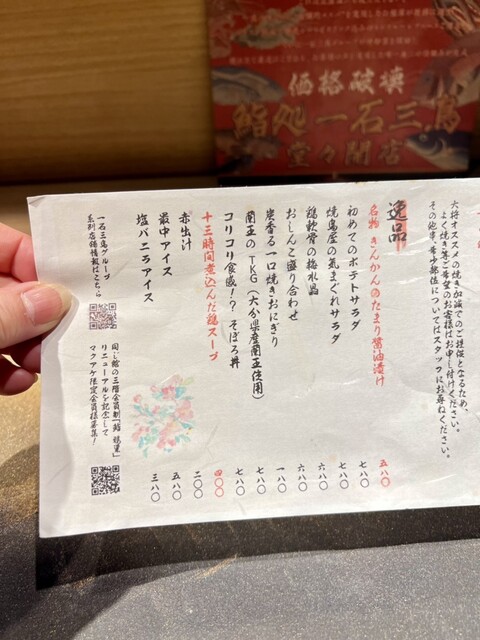 価格破壊
鮨処 一石三鳥
堂々開店
六将オススメの焼き加減でのご提供となるため、
よく焼き等ご希望のお客様はお申し付けください。
その他串・希少部位についてはスタッフにお尋ねください。
逸品
名物 きんかんのたまり醤油漬け 五八〇
初めてのポテトサラダ 七八〇
焼鳥屋の気まぐれサラダ 七八〇
鶏軟骨の梅水晶 六八〇
おしんこ盛り合わせ 六八〇
炭香る一口焼きおにぎり 一八〇
蘭王のTKG(大分県産蘭王使用) 七八〇
コリコリ食感!?そぼろ丼 七八〇
十三時間煮込んだ鶏スープ 四〇〇
赤出汁 二〇〇
最中アイス 五八〇
塩バニラアイス 三八〇
一石三鳥グループ
系列店舗情報はこちら
同じ館の三階会員制「鮨
リニューアルを記念して
マクアケ限定会員様募集!